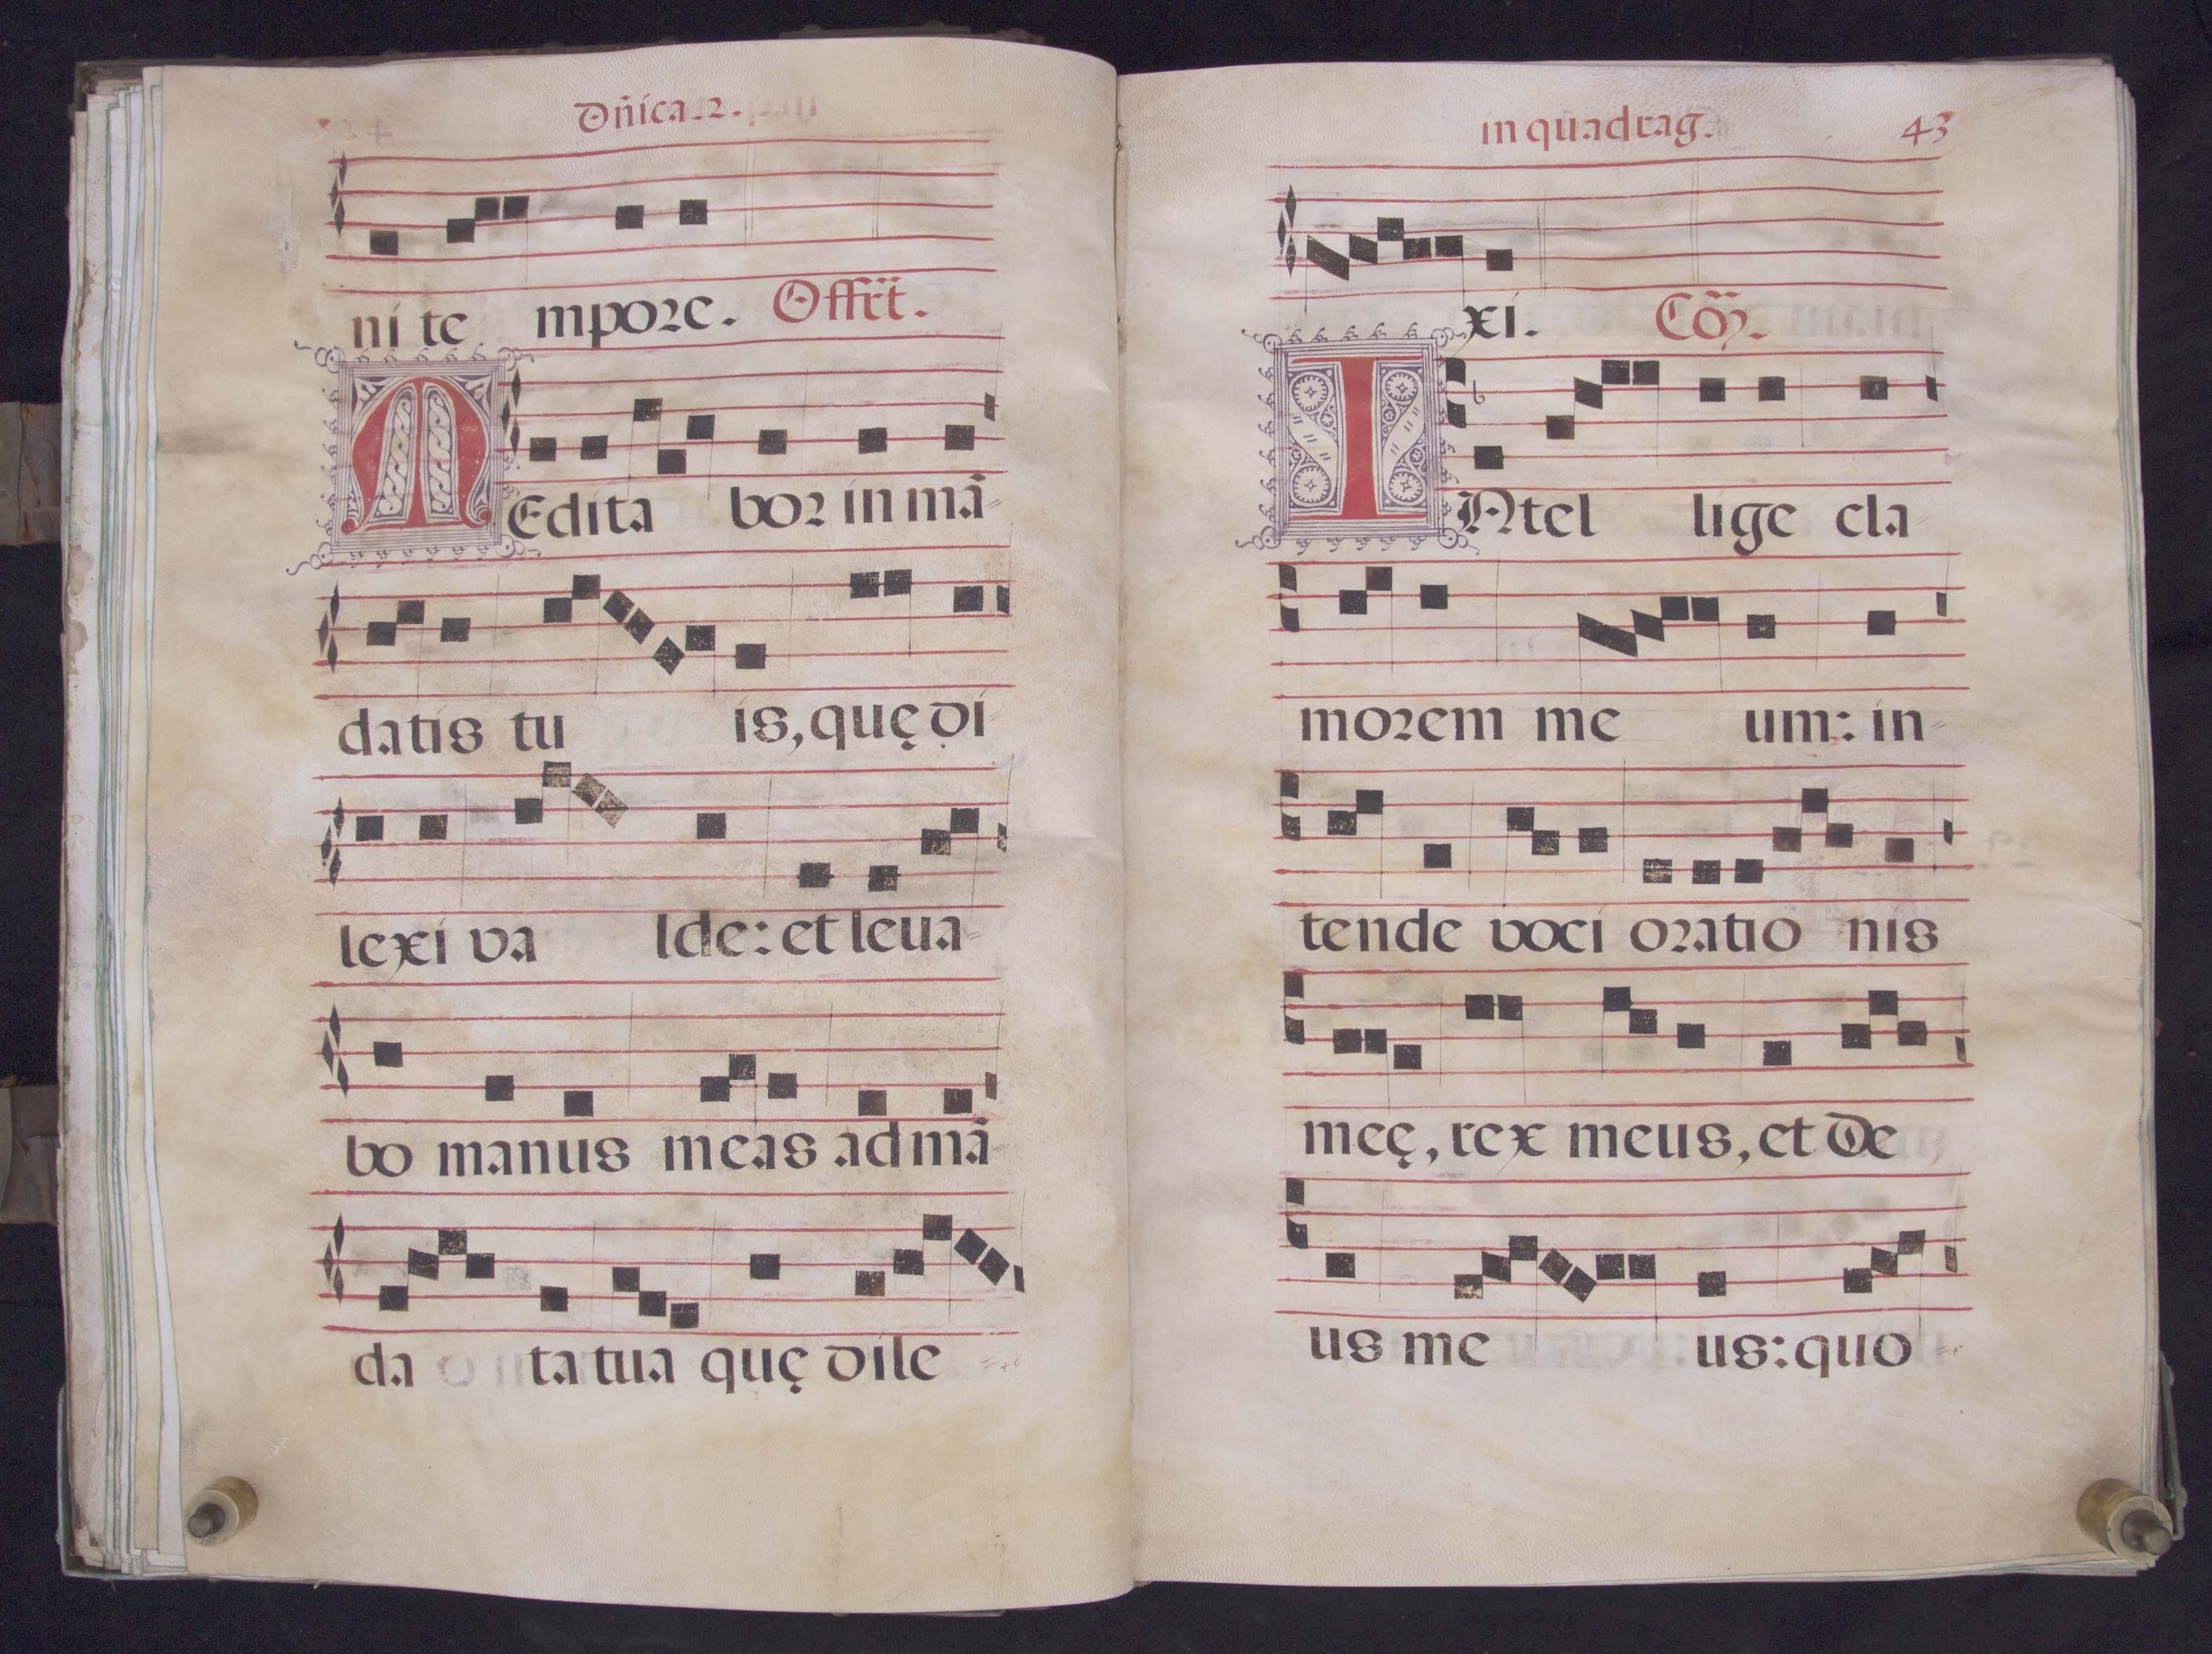 Dñica. 2.
ni te mpore. Offr̃t.
MEdita bor in mā-
datis tu is, quę di-
lexi va lde: et leua-
bo manus meas ad mā-
da ta tua quę dile-
in quadrag. 43
xi. Cõ.
INtel lige cla-
morem me um: in-
tende voci oratio nis
meę, rex meus, et De-
us me us: quo-